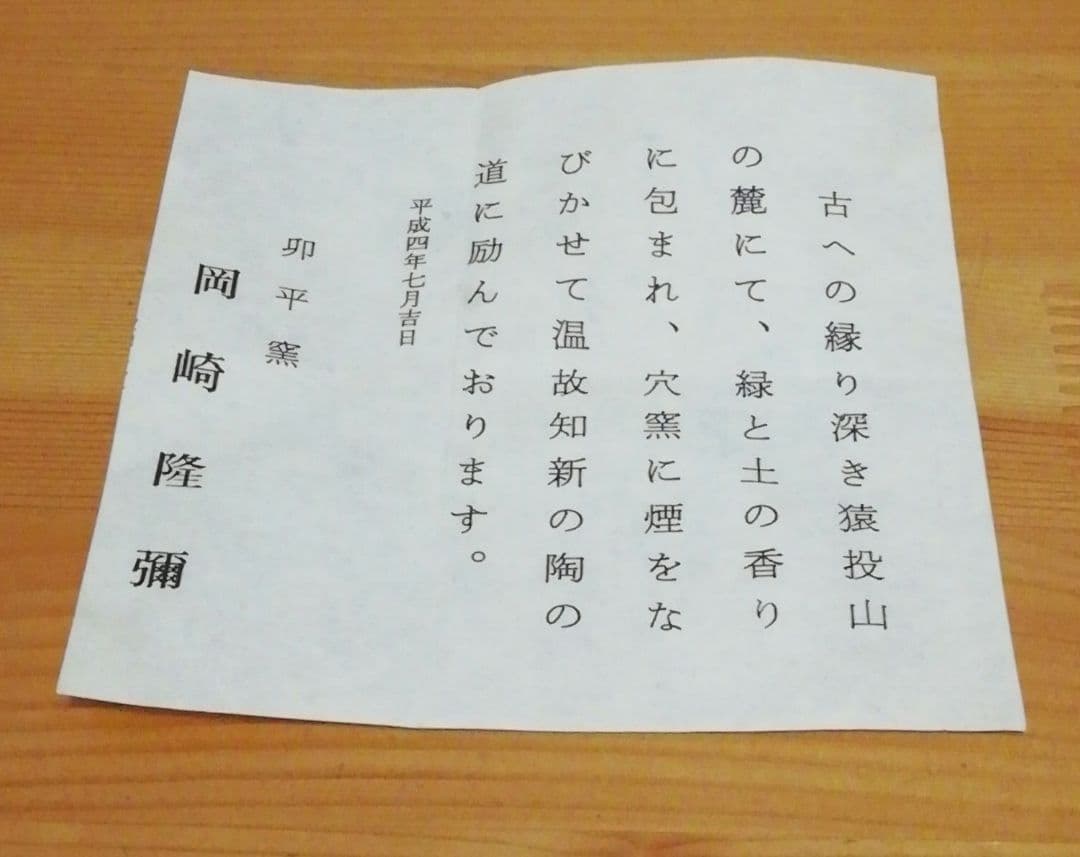 古への縁り深き猿投山
の麓にて、緑と土の香り
に包まれ、穴窯に煙をな
びかせて温故知新の陶の
道に励んでおります。
平成四年七月吉日
卯平窯
岡崎隆彌